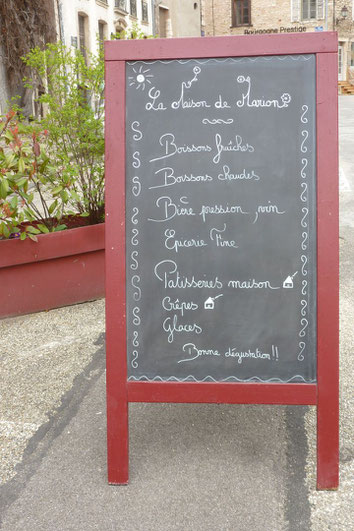 Bourgogne Prestige
La Maison de Marion
Boissons fraîches
Boissons chaudes
Bière pression, vin
Epicerie Fine
Patisseries maison
Crêpes
Glaces
Bonne dégustation!!